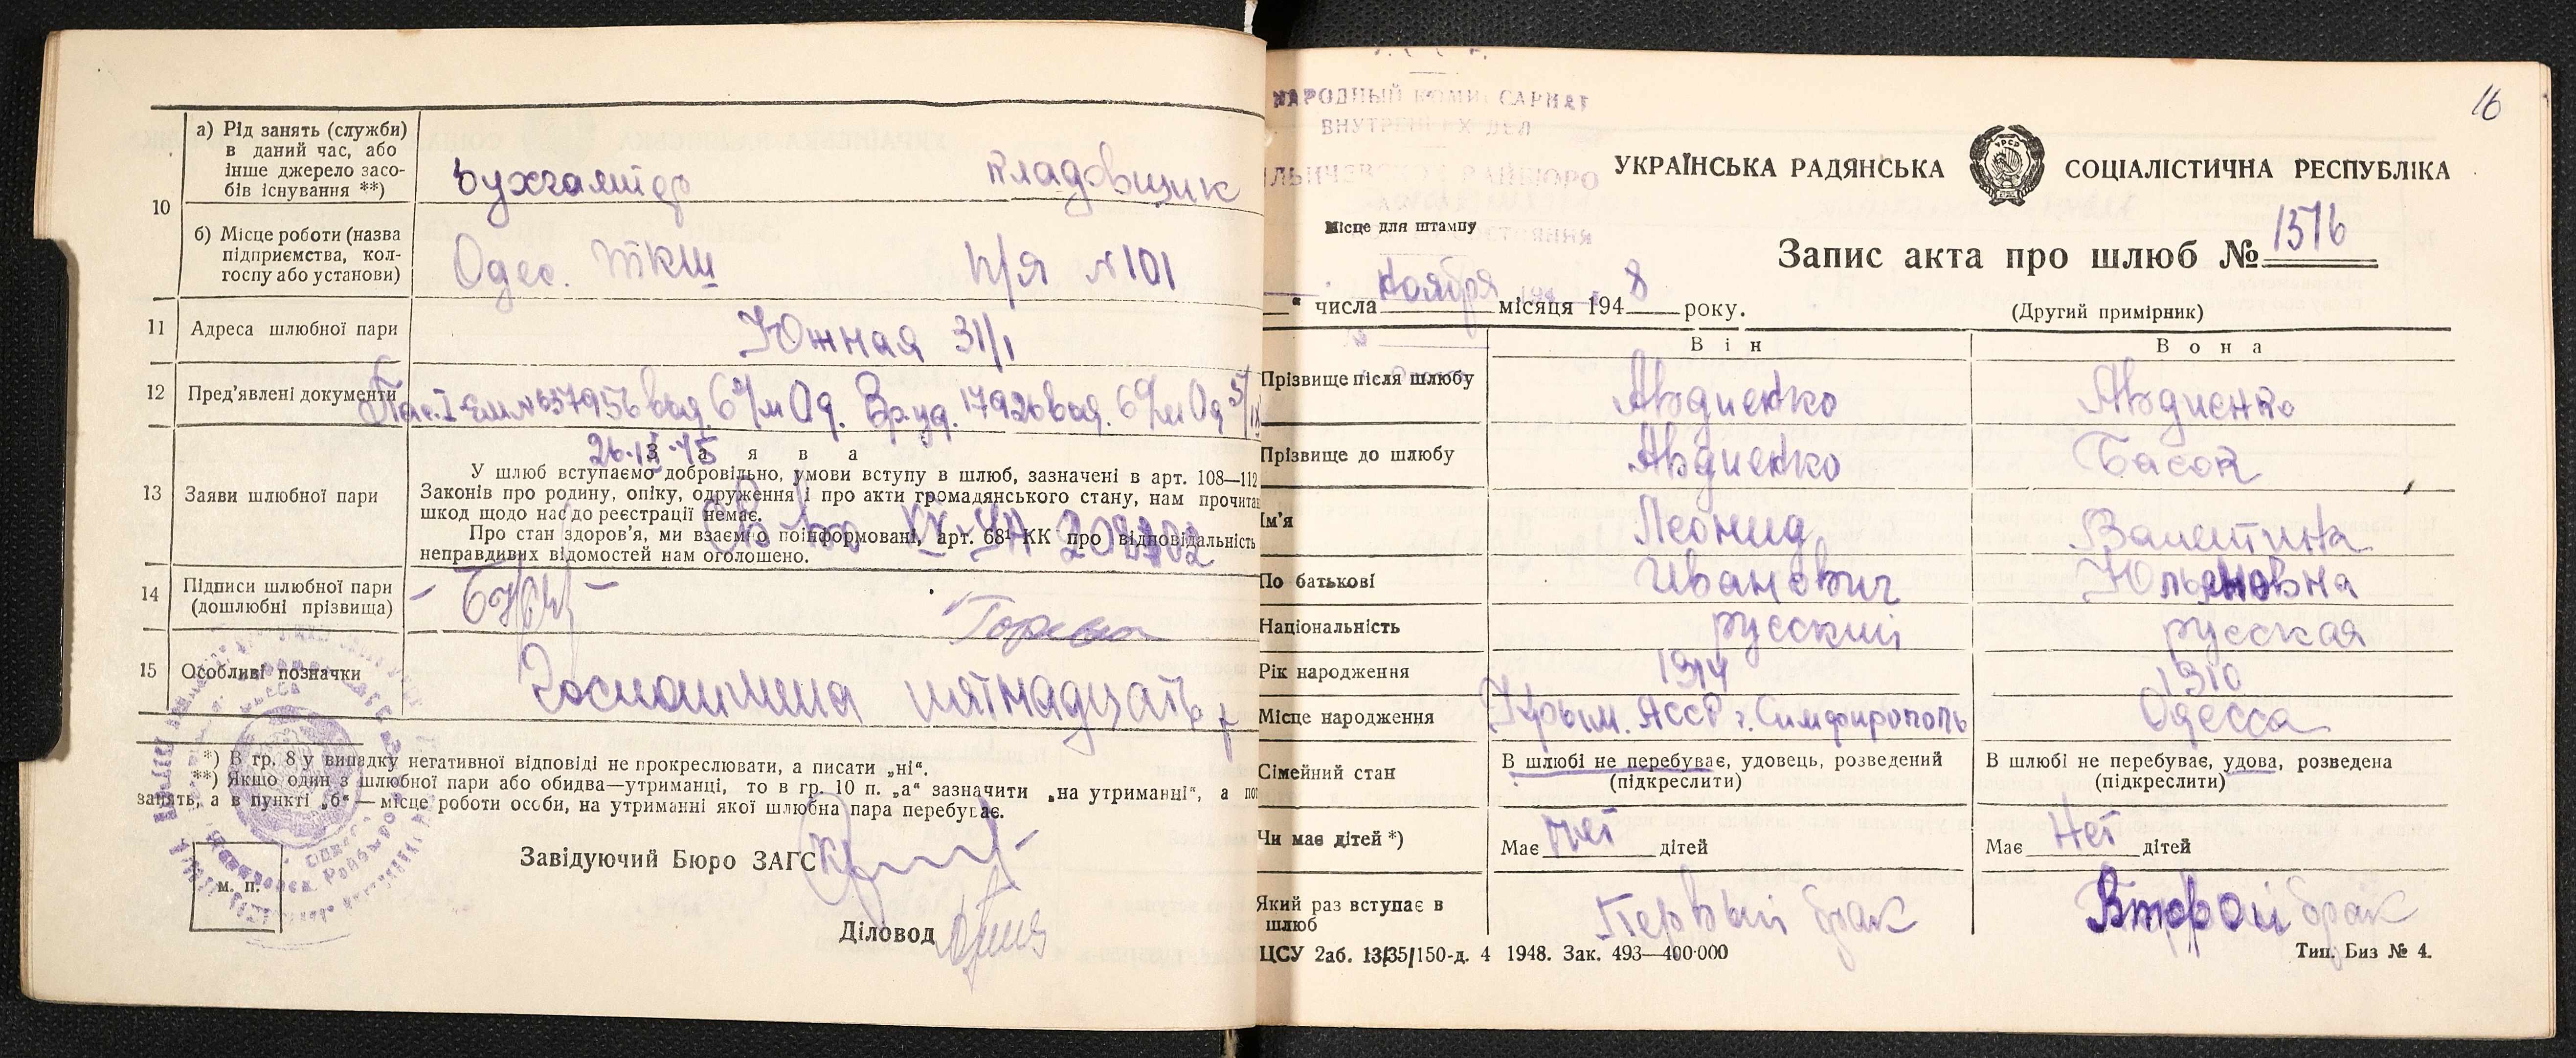 10
а) Рід занять (служби)
в даний час, або
інше джерело засо-
бів існування **)
Бухгалтер
Кладовщик
б) Місце роботи (назва
підприємства, кол-
госпу або установи)
Одес.
п/я №101
11
Адреса шлюбної пари
Южная 31/1
12
Пред'явлені документи
26.IX.45
13
Заяви шлюбної пари
З а я в а
У шлюб вступаємо добровільно, умови вступу в шлюб, зазначені в арт. 108—112
Законів про родину, опіку, одруження і про акти громадянського стану, нам прочитан
шкод щодо нас до реєстрації немає.
Про стан здоров'я, ми взаємно поінформовані, арт. 68¹ КК про відповідальність
неправдивих відомостей нам оголошено.
14
Підписи шлюбної пари
(дошлюбні прізвища)
15
Особливі позначки
Госпошлина пятнадцать р
*) В гр. 8 у випадку негативної відповіді не прокреслювати, а писати „ні“.
**) Якщо один з шлюбної пари або обидва—утриманці, то в гр. 10 п. „а“ зазначити „на утриманні“, а пот
занять, а в пункті „б“ — місце роботи особи, на утриманні якої шлюбна пара перебуває.
Завідуючий Бюро ЗАГС
м. п.
Діловод
16
НАРОДНЫЙ КОМИССАРИАТ
ВНУТРЕННИХ ДЕЛ
УКРАЇНСЬКА РАДЯНСЬКА СОЦІАЛІСТИЧНА РЕСПУБЛІКА
УРСР
Місце для штампу
Запис акта про шлюб № 1516
“ числа ноября місяця 1948 року.
(Другий примірник)
Він
Вона
Прізвище після шлюбу
Авдиенко
Авдиенко
Прізвище до шлюбу
Авдиенко
Басок
Ім'я
Леонид
Валентина
По батькові
Иванович
Юльяновна
Національність
русский
русская
Рік народження
1914
1910
Місце народження
Крым. АССР г. Симферополь
Одесса
Сімейний стан
В шлюбі не перебуває, удовець, розведений
(підкреслити)
В шлюбі не перебуває, удова, розведена
(підкреслити)
Чи має дітей *)
Має нет дітей
Має Нет дітей
Який раз вступає в
шлюб
Первый брак
Второй брак
ЦСУ 2аб. 13/35/150-д. 4 1948. Зак. 493—400·000
Тип. Биз № 4.